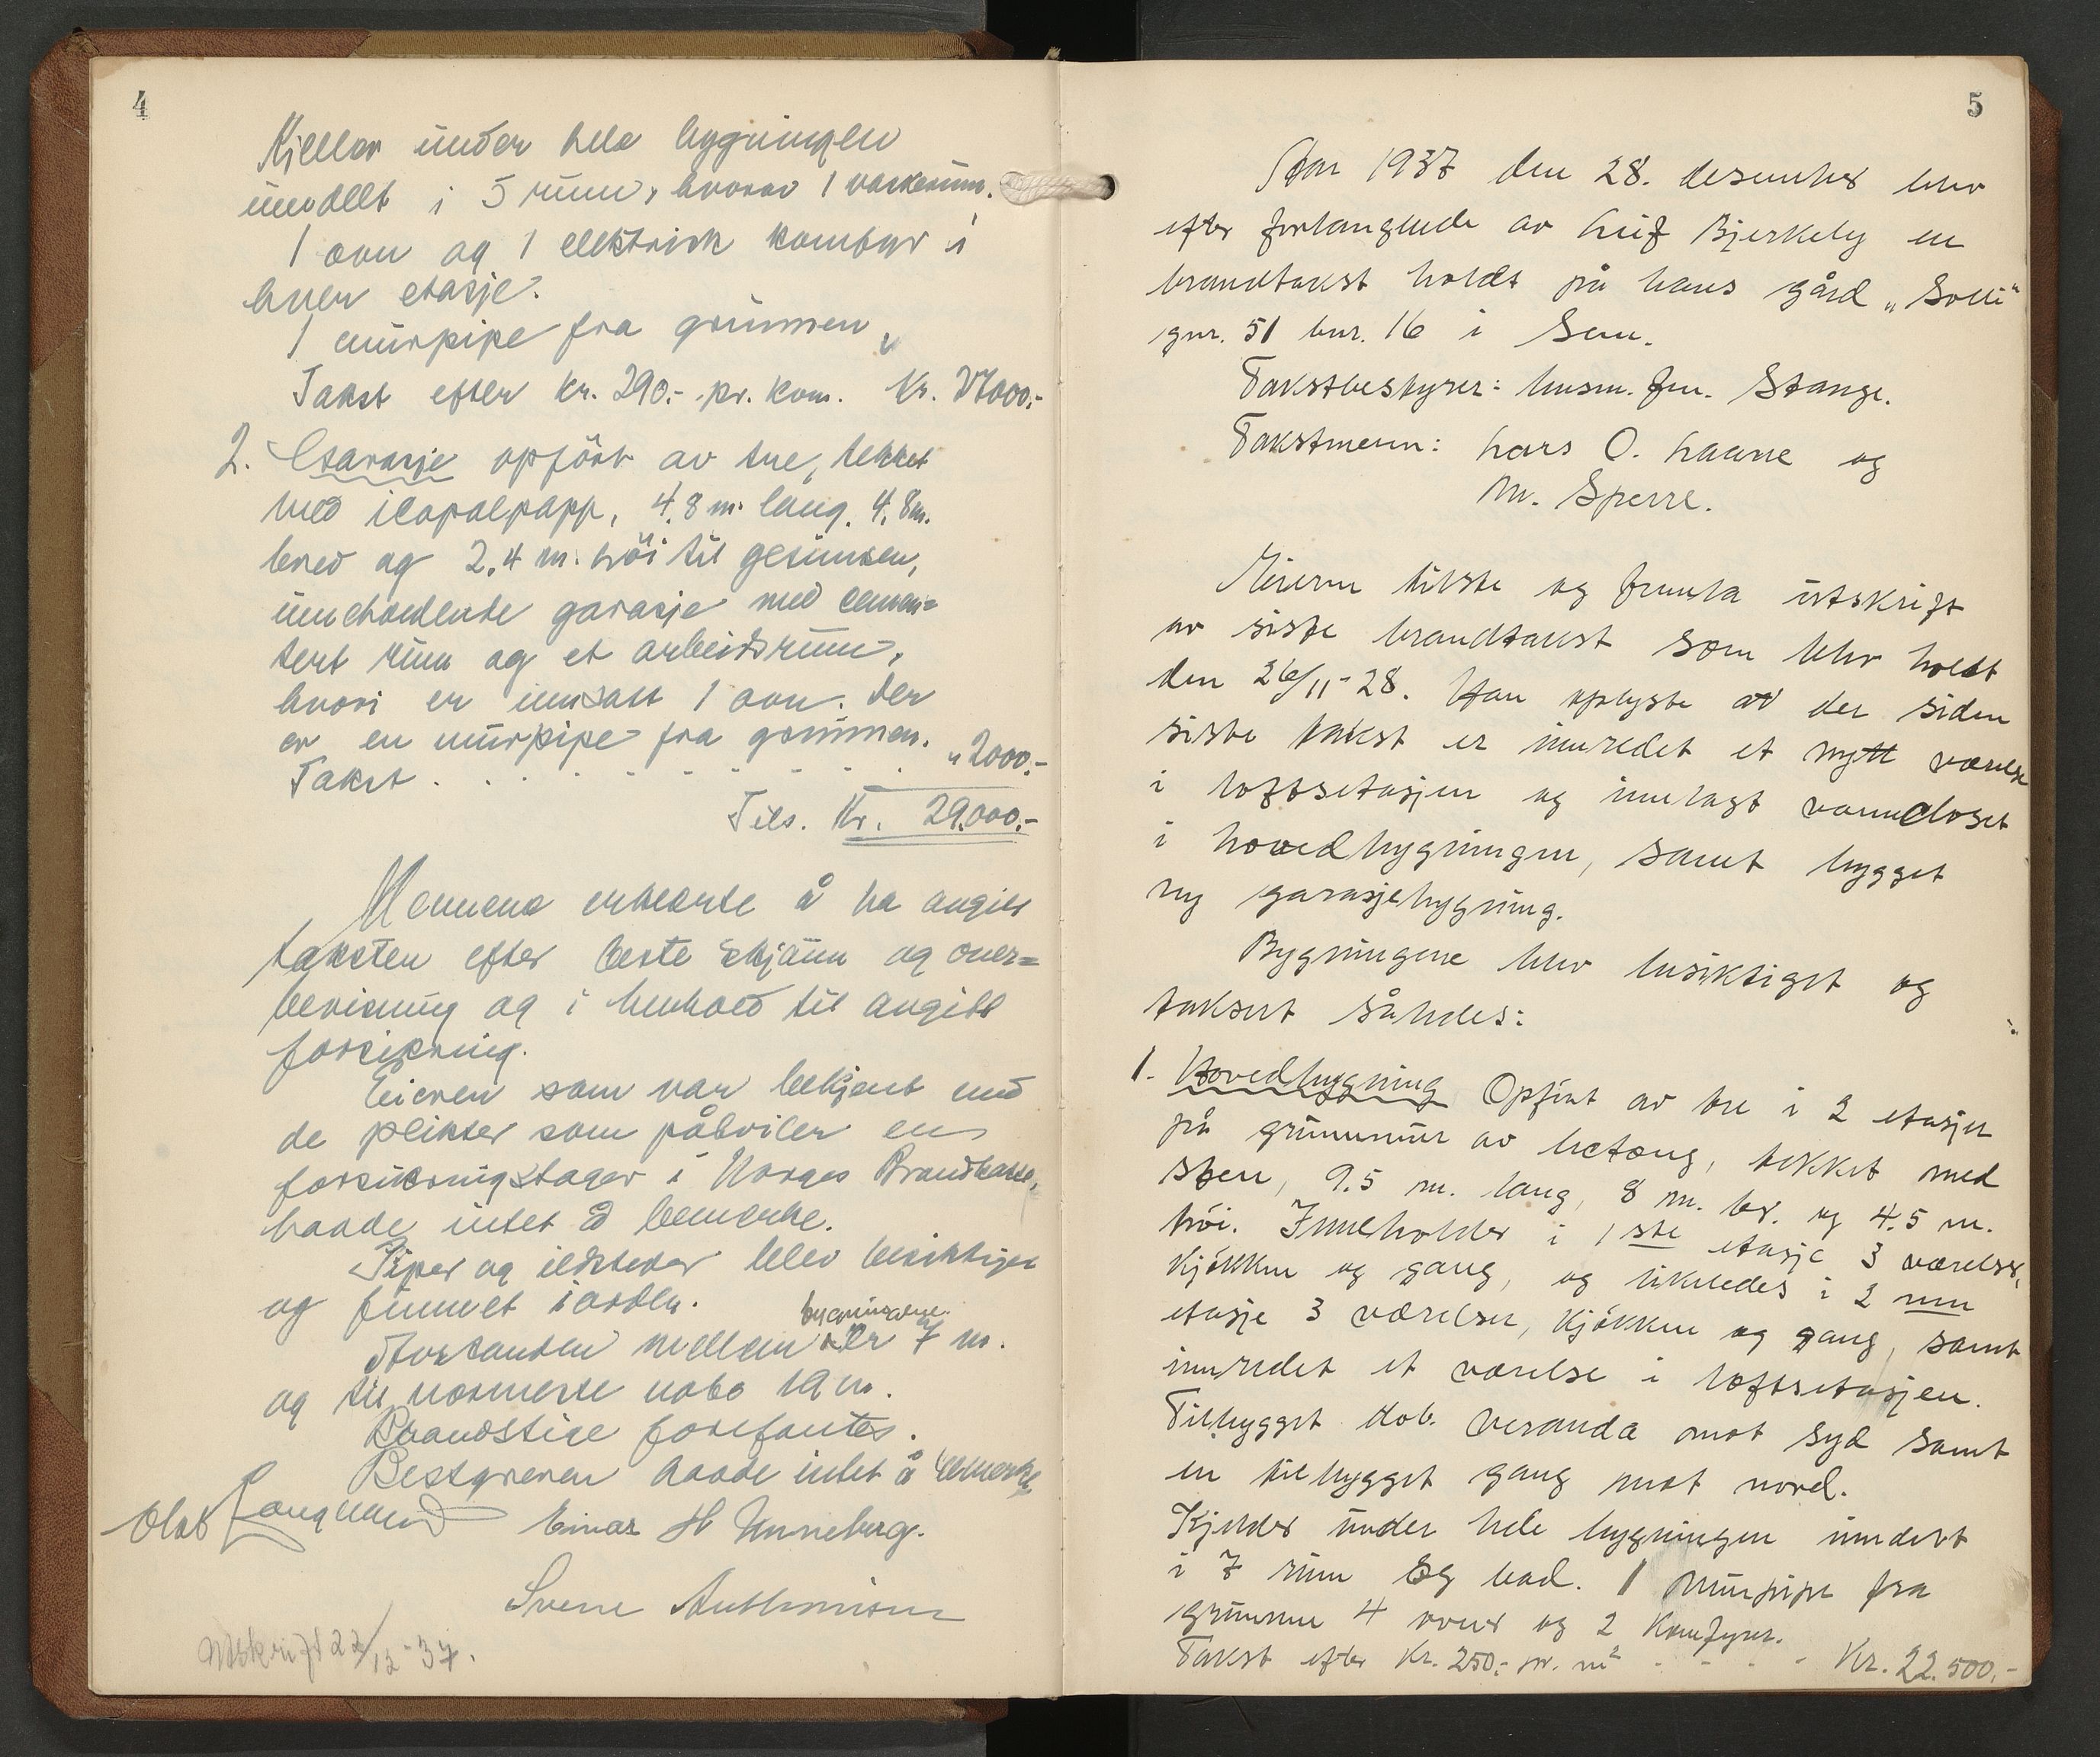 4
Kjeller under hele bygningen
inndelt i 5 rum, hvorav 1 vaskerum.
1 ovn og 1 elektrisk komfyr i
hver etasje.
1 murpipe fra grunnen,
Takst efter kr. 290.- pr. kvm. Kr. 27000.-
2. Garasje opført av tre, tekket
med icopalpapp, 4,8 m. lang, 4,8 m.
bred og 2,4 m. höi til gesimsen,
inneholdende garasje med cemen=
tert rum og et arbeidsrum,
hvori er innsatt 1 ovn. Der
er en murpipe fra grunnen.
Takst . . . . . . . . . . " 2000.-
Tils. Kr. 29.000.-
Mennene erklærte å ha angitt
taksten efter beste skjönn og over=
bevisning og i henhold til avgitt
forsikring.
Eieren som var bekjent med
de plikter som påhviler en
forsikringstager i Norges Brandkasse,
hadde intet å bemerke.
Piper og ildsteder blev besiktiget
og funnet i orden.
bygningene
Avstanden mellem er 7 m.
og til nærmeste nabo 19 m.
Brandstige forefantes.
Bestyreren hadde intet å bemerke
Olaf Langaard Einar H Unneberg.
Sverre
Utskrift 22/12-37.
5
År 1937 den 28. desember blev
efter forlangende av Leif Bjerkely en
brandtakst holdt på hans gård „Solli"
gnr. 51 bnr. 16 i Sem.
Takstbestyrer: lensm. fm. Stange.
Takstmenn: Lars O. Laane og
M. Sperre.
Eieren tilste og fremla utskrift
av siste brandtakst som blev holdt
den 26/11-28. Han oplyste at der siden
siste takst er innredet et nytt værelse
i loftsetasjen og innlagt vanncloset
i hovedbygningen, samt bygget
ny garasjebygning.
Bygningene blev besiktiget og
taksert således:
1. Hovedbygning Opført av tre i 2 etasjer
på grunnmur av betong, tekket med
sten, 9.5 m. lang, 8 m. br. og 4.5 m.
höi. Inneholder i 1ste etasje 3 værelser,
kjökken og gang, og likeledes i 2nen
etasje 3 værelser, kjökken og gang, samt
innredet et værelse i loftsetasjen.
Tilbygget dob. veranda mot syd samt
en tilbygget gang mot nord.
Kjelder under hele bygningen inndelt
i 7 rum og bad. 1 Murpipe fra
grunnen 4 ovner og 2 Komfyrer.
Takst efter Kr. 250.- pr. m² - - - - Kr. 22.500.-